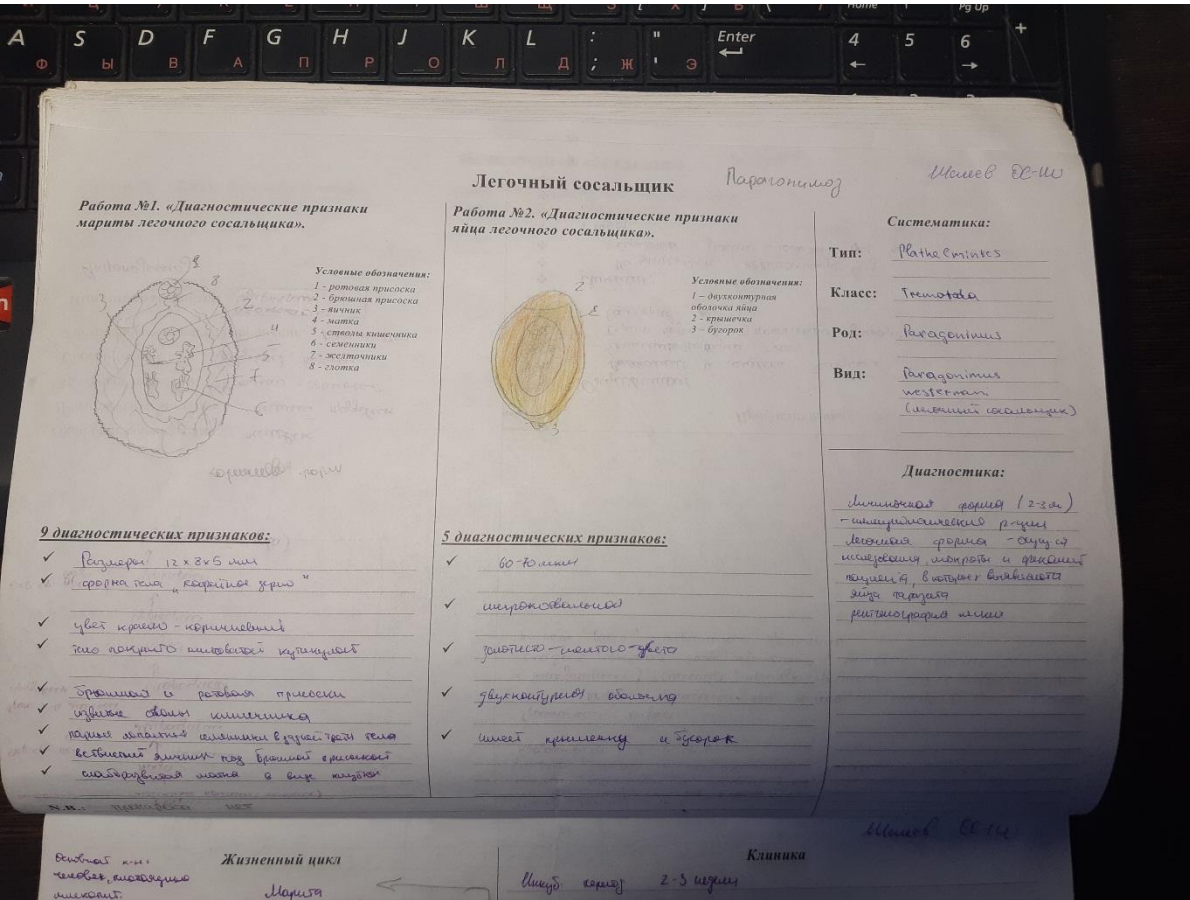 A S D F G H J K L : " Enter 4 5 6 +
Ф Ы В А П Р О Л Д ; Ж ' Э
Home Pg Up
Легочный сосальщик
Парагонимоз
Работа №1. «Диагностические признаки
мариты легочного сосальщика».
Условные обозначения:
1 - ротовая присоска
2 - брюшная присоска
3 - яичник
4 - матка
5 - стволы кишечника
6 - семенники
7 - желточники
8 - глотка
3
8
2
4
5
7
9 диагностических признаков:
Размеры 12 x 8 x 5 мм
форма тела „кофейное зерно"
цвет красно-коричневый
тело покрыто шиповатой кутикулой
брюшная и ротовая присоски
извитые стволы кишечника
парные лопастные семенники в задней трети тела
ветвистый яичник под брюшной присоской
слаборазвитая матка в виде клубка
N.B.: нет
Работа №2. «Диагностические признаки
яйца легочного сосальщика».
Условные обозначения:
1 – двухконтурная
оболочка яйца
2 - крышечка
3 – бугорок
2
3
5 диагностических признаков:
60-70 мкм
широкоовальной
золотисто-желтого цвета
двухконтурная оболочка
имеет крышечку и бугорок
Систематика:
Тип: Plathelmintes
Класс: Trematoda
Род: Paragonimus
Вид: Paragonimus
westermani
(легочный сосальщик)
Диагностика:
Личиночная форма (2-3 )
- иммунологические р-ции
Легочная форма -
исследования мокроты и фекалий
пациента, в которых выявляются
яйца паразита
рентгенография легких
Жизненный цикл
Основной х-н:
человек, плотоядные
млекопит.
Марита
Клиника
Инкуб. период 2-3 недели